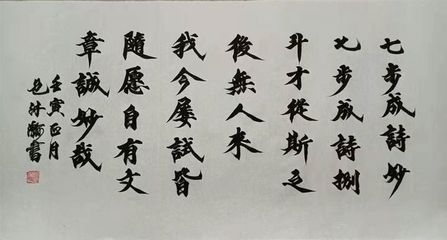 七步成詩妙
步成詩捌
斗才從斯之
後無人來
我今屡試皆
隨愿自有文
章誠妙哉
壬寅正月
書